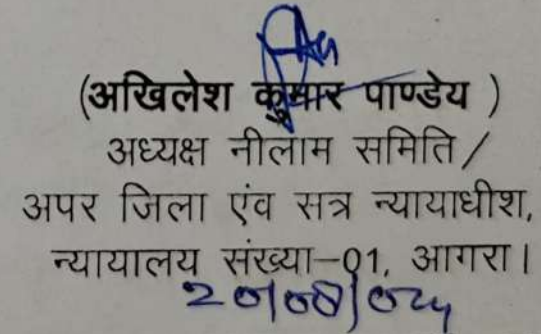 (अखिलेश कुमार पाण्डेय )
अध्यक्ष नीलाम समिति/
अपर जिला एंव सत्र न्यायाधीश,
न्यायालय संख्या–01, आगरा।